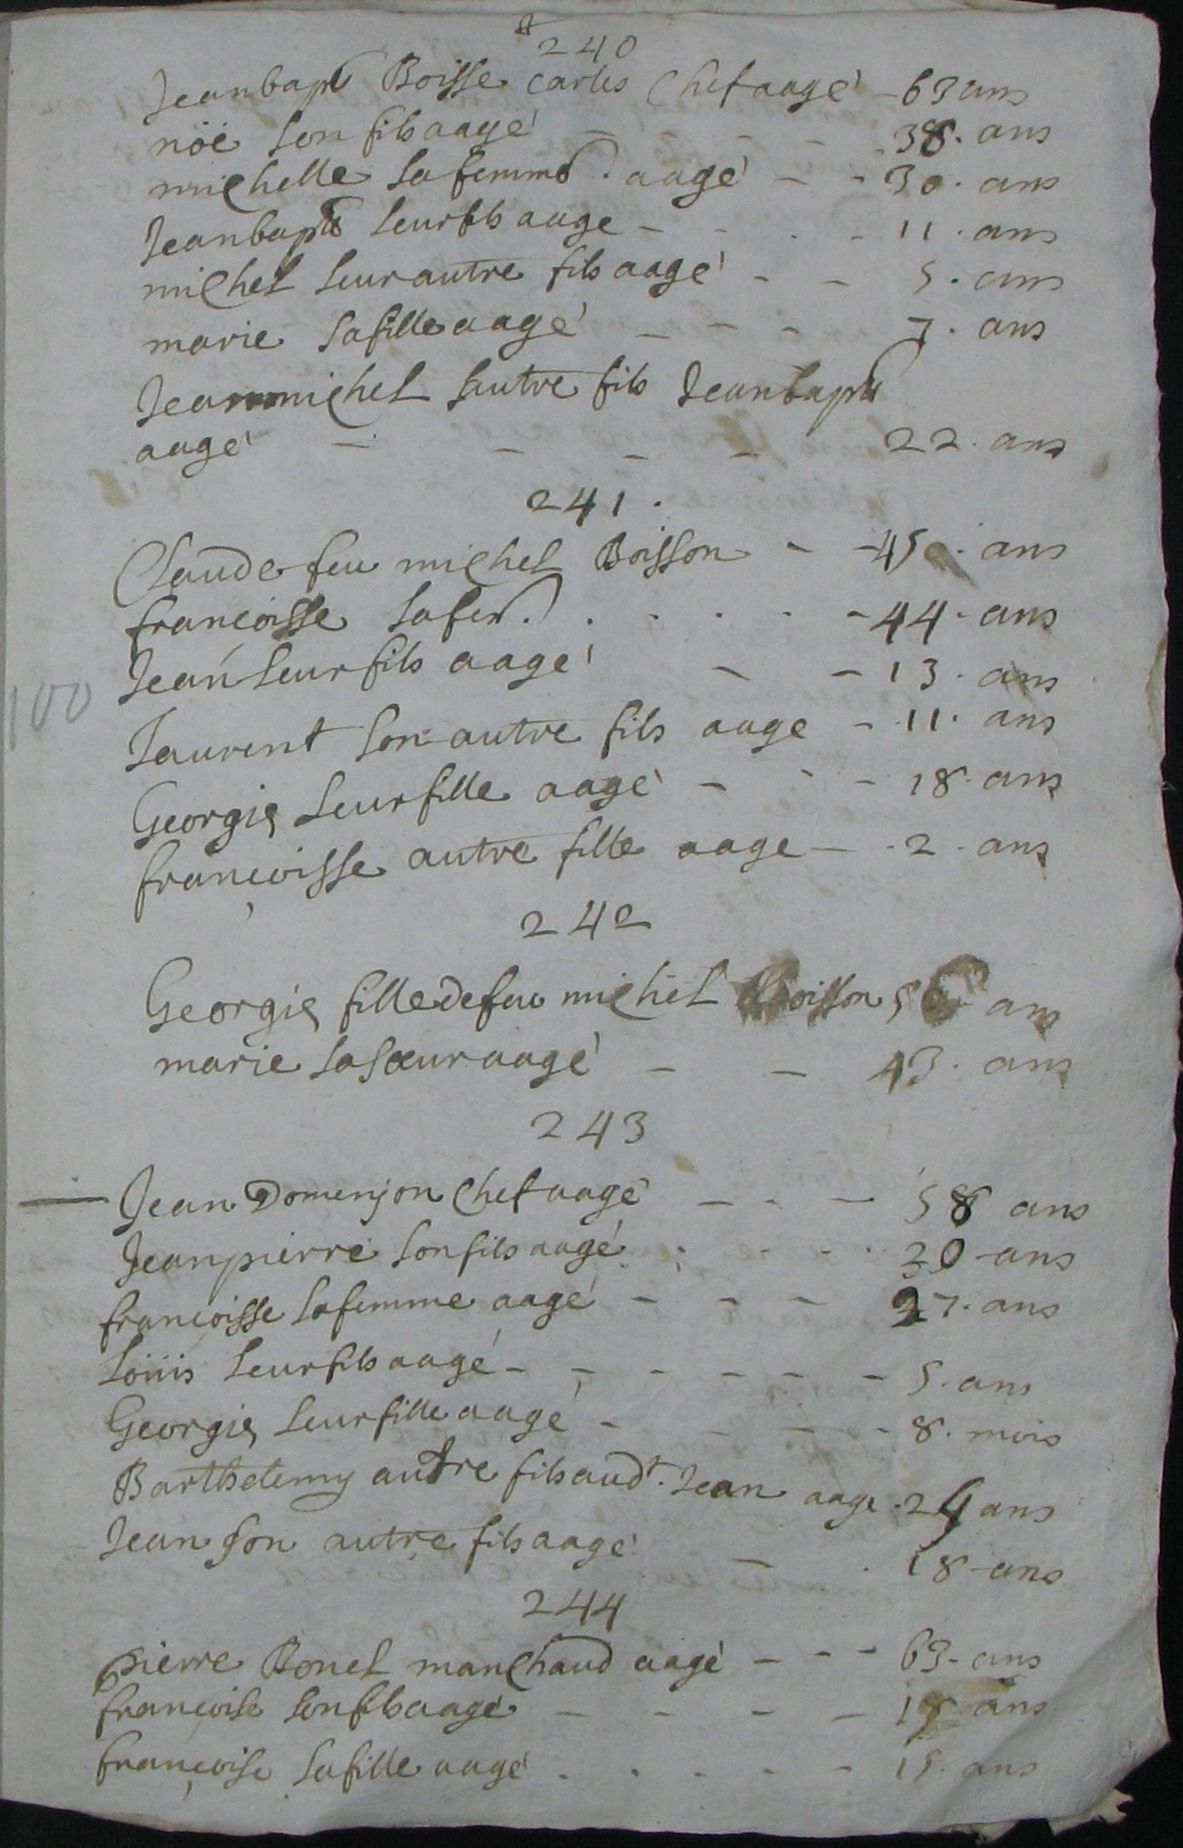 240
Jeanbapt Boisse carles Chef aagé - 63 ans
nöé son fils aagé - - - - 38. ans
michelle sa femme. aagé - - 30. ans
Jeanbapte leur fils aage - - . - 11. ans
michel leur autre fils aagé - - 5. ans
marie sa fille aagé - - - 7. ans
Jeanmichel autre fils Jeanbapte
aagé - - - - 22. ans
241.
Claude feu michel Boisson - - 45. ans
francoisse sa fem. . . . . - 44. ans
Jean leur fils aagé - - 13. ans
100
Laurent son autre fils aage - 11. ans
Georgie leur fille aagé - - - 18. ans
françoisse autre fille aage - . 2. ans
242
Georgie fille de feu michel Boisson 5 ans
marie sa sœur aagé - - 43. ans
243
Jean Domenjon Chef aagé - - - 58 ans
Jeanpierre son fils aagé . . . . 30 ans
françoisse sa femme aagé - - - 27. ans
Loüis leur fils aagé - - - - - - 5. ans
Georgie leur fille aagé - - - - 8. mois
Barthelemy autre fils audt. Jean aage . 24 ans
Jean son autre fils aagé - . 18 ans
244
pierre Bonel marchand aagé - - - 63. ans
françoise son fils aagé - - - - 18 ans
françoise sa fille aagé . . . . - 15. ans